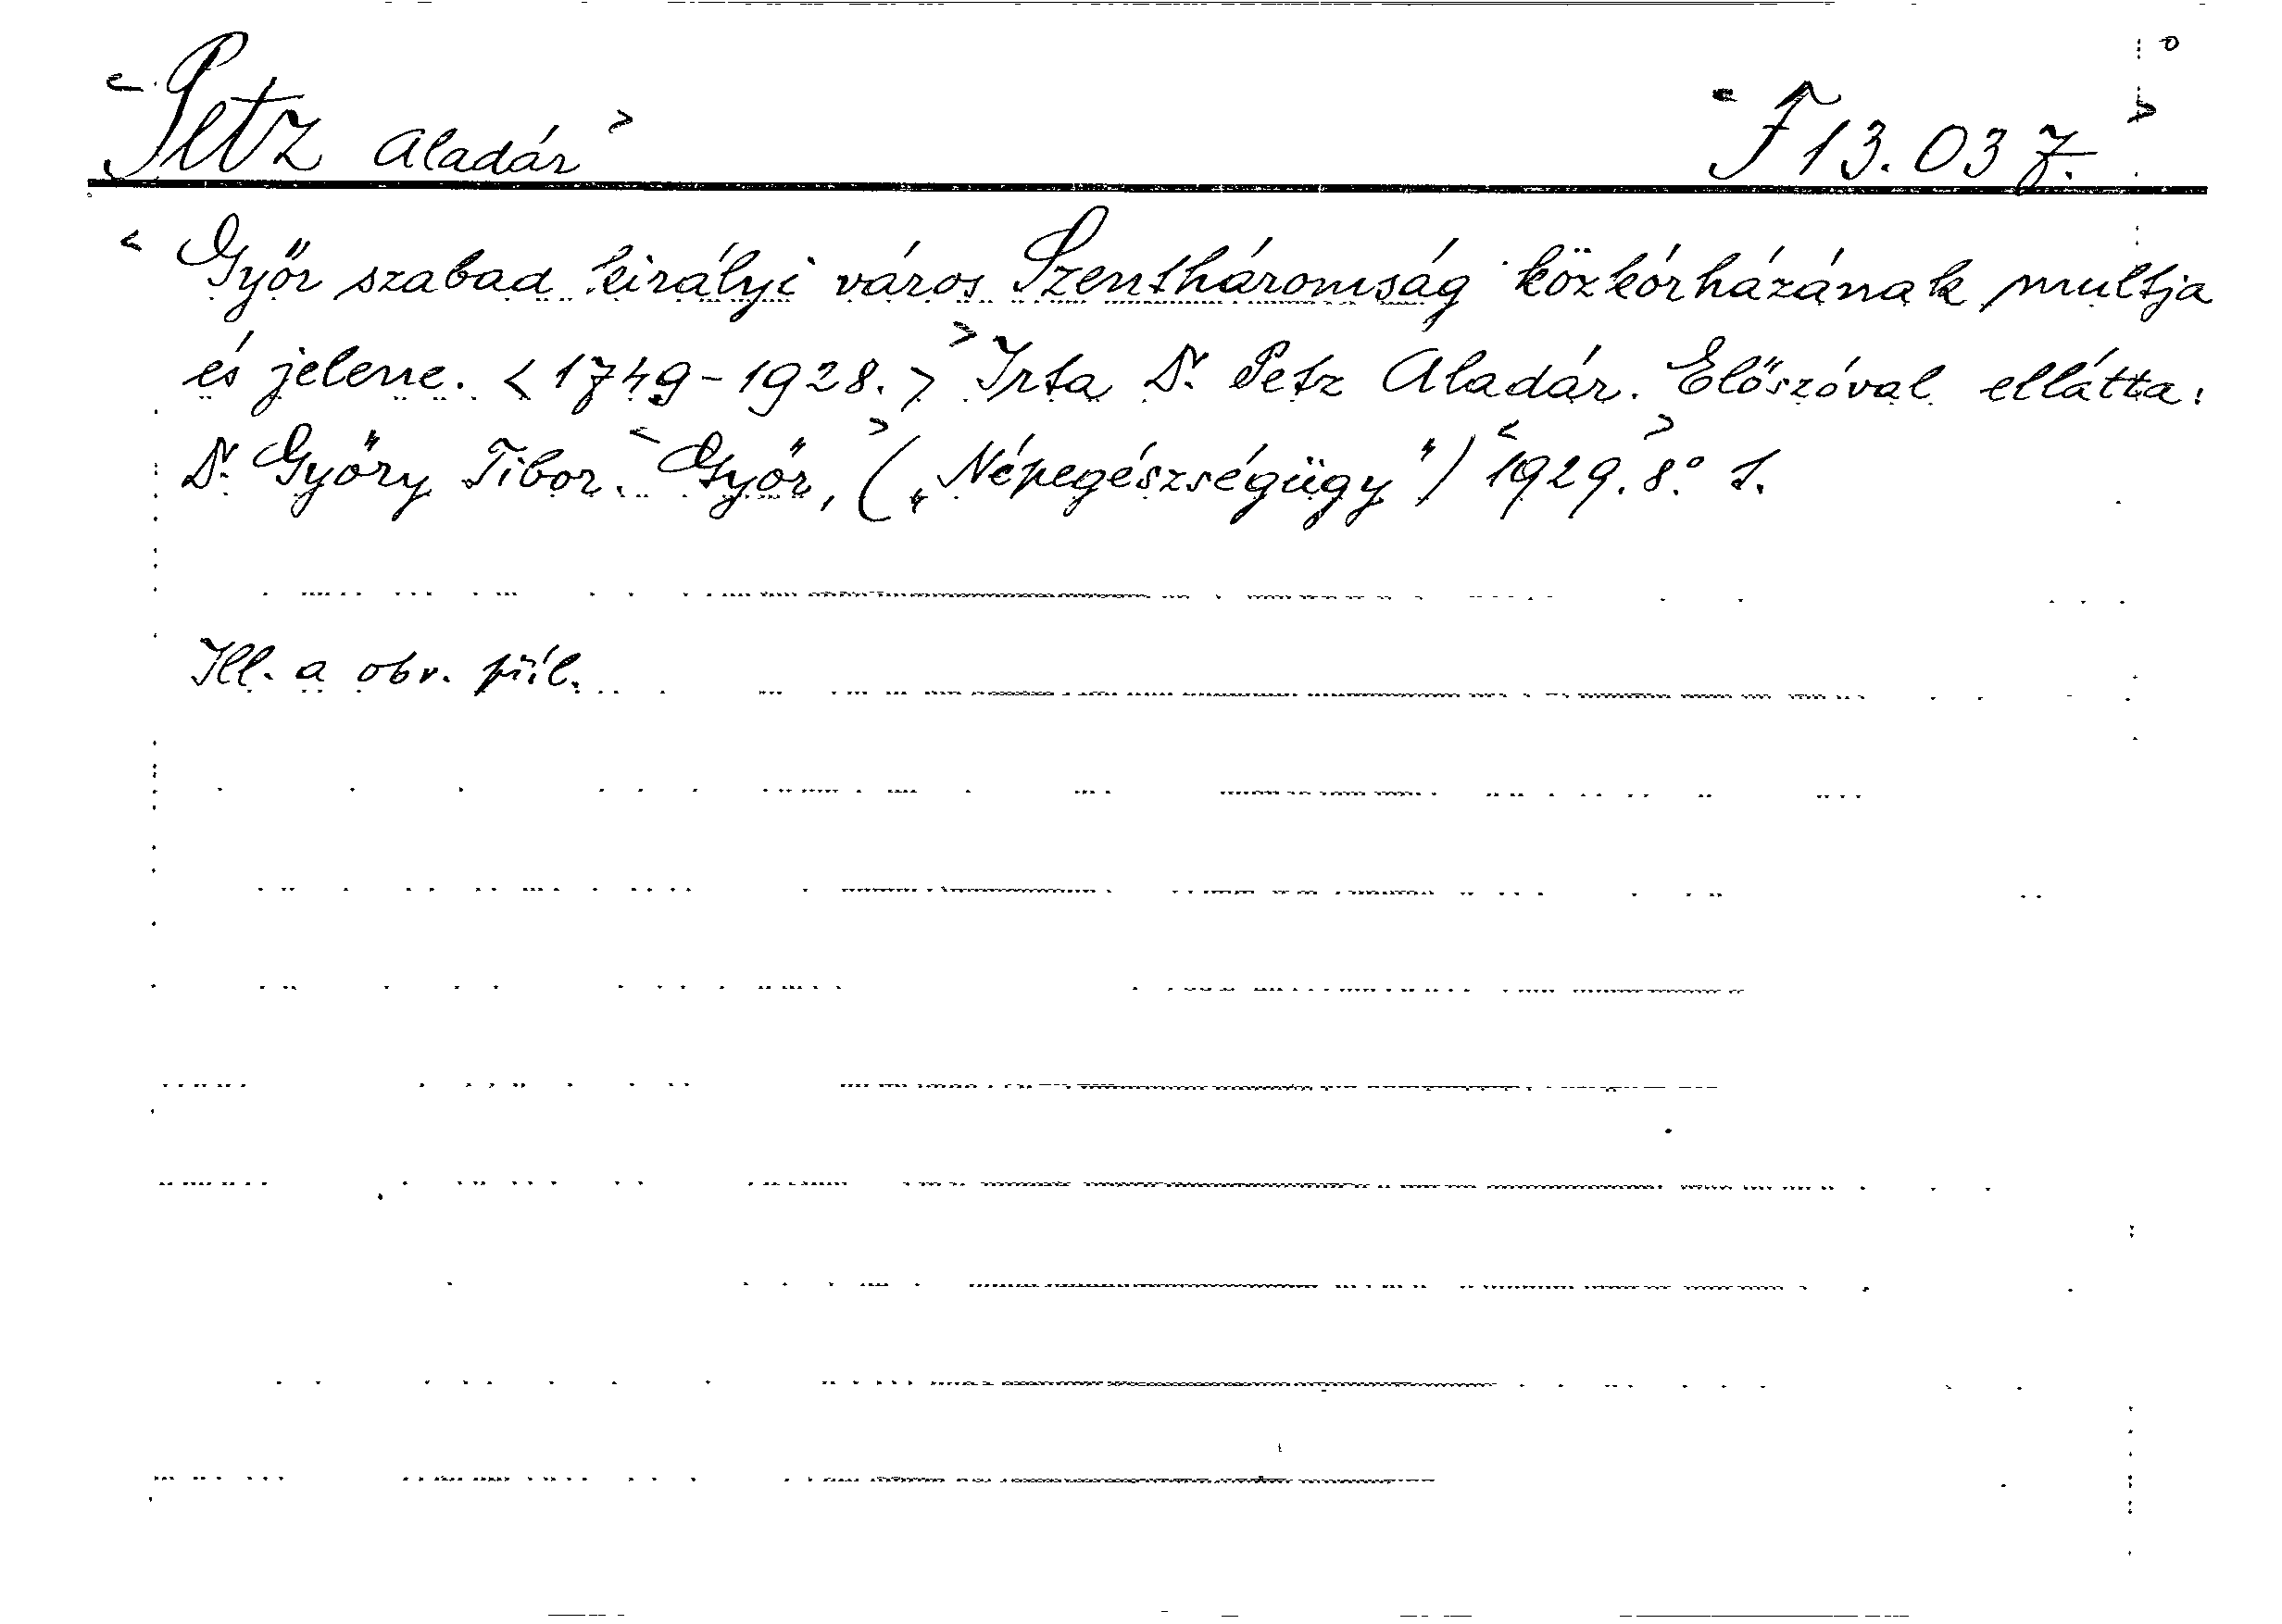 <Petz Aladár> <F 13.037.>
<Győr szabad királyi város Szentháromság közkórházának multja
és jelene. <1749-1928.>> Irta Dr. Petz Aladár. Előszóval ellátta:
Dr. Győry Tibor. <Győr,> („Népegészségügy") <1929.> 8.° S.
Ill. a obr. příl.